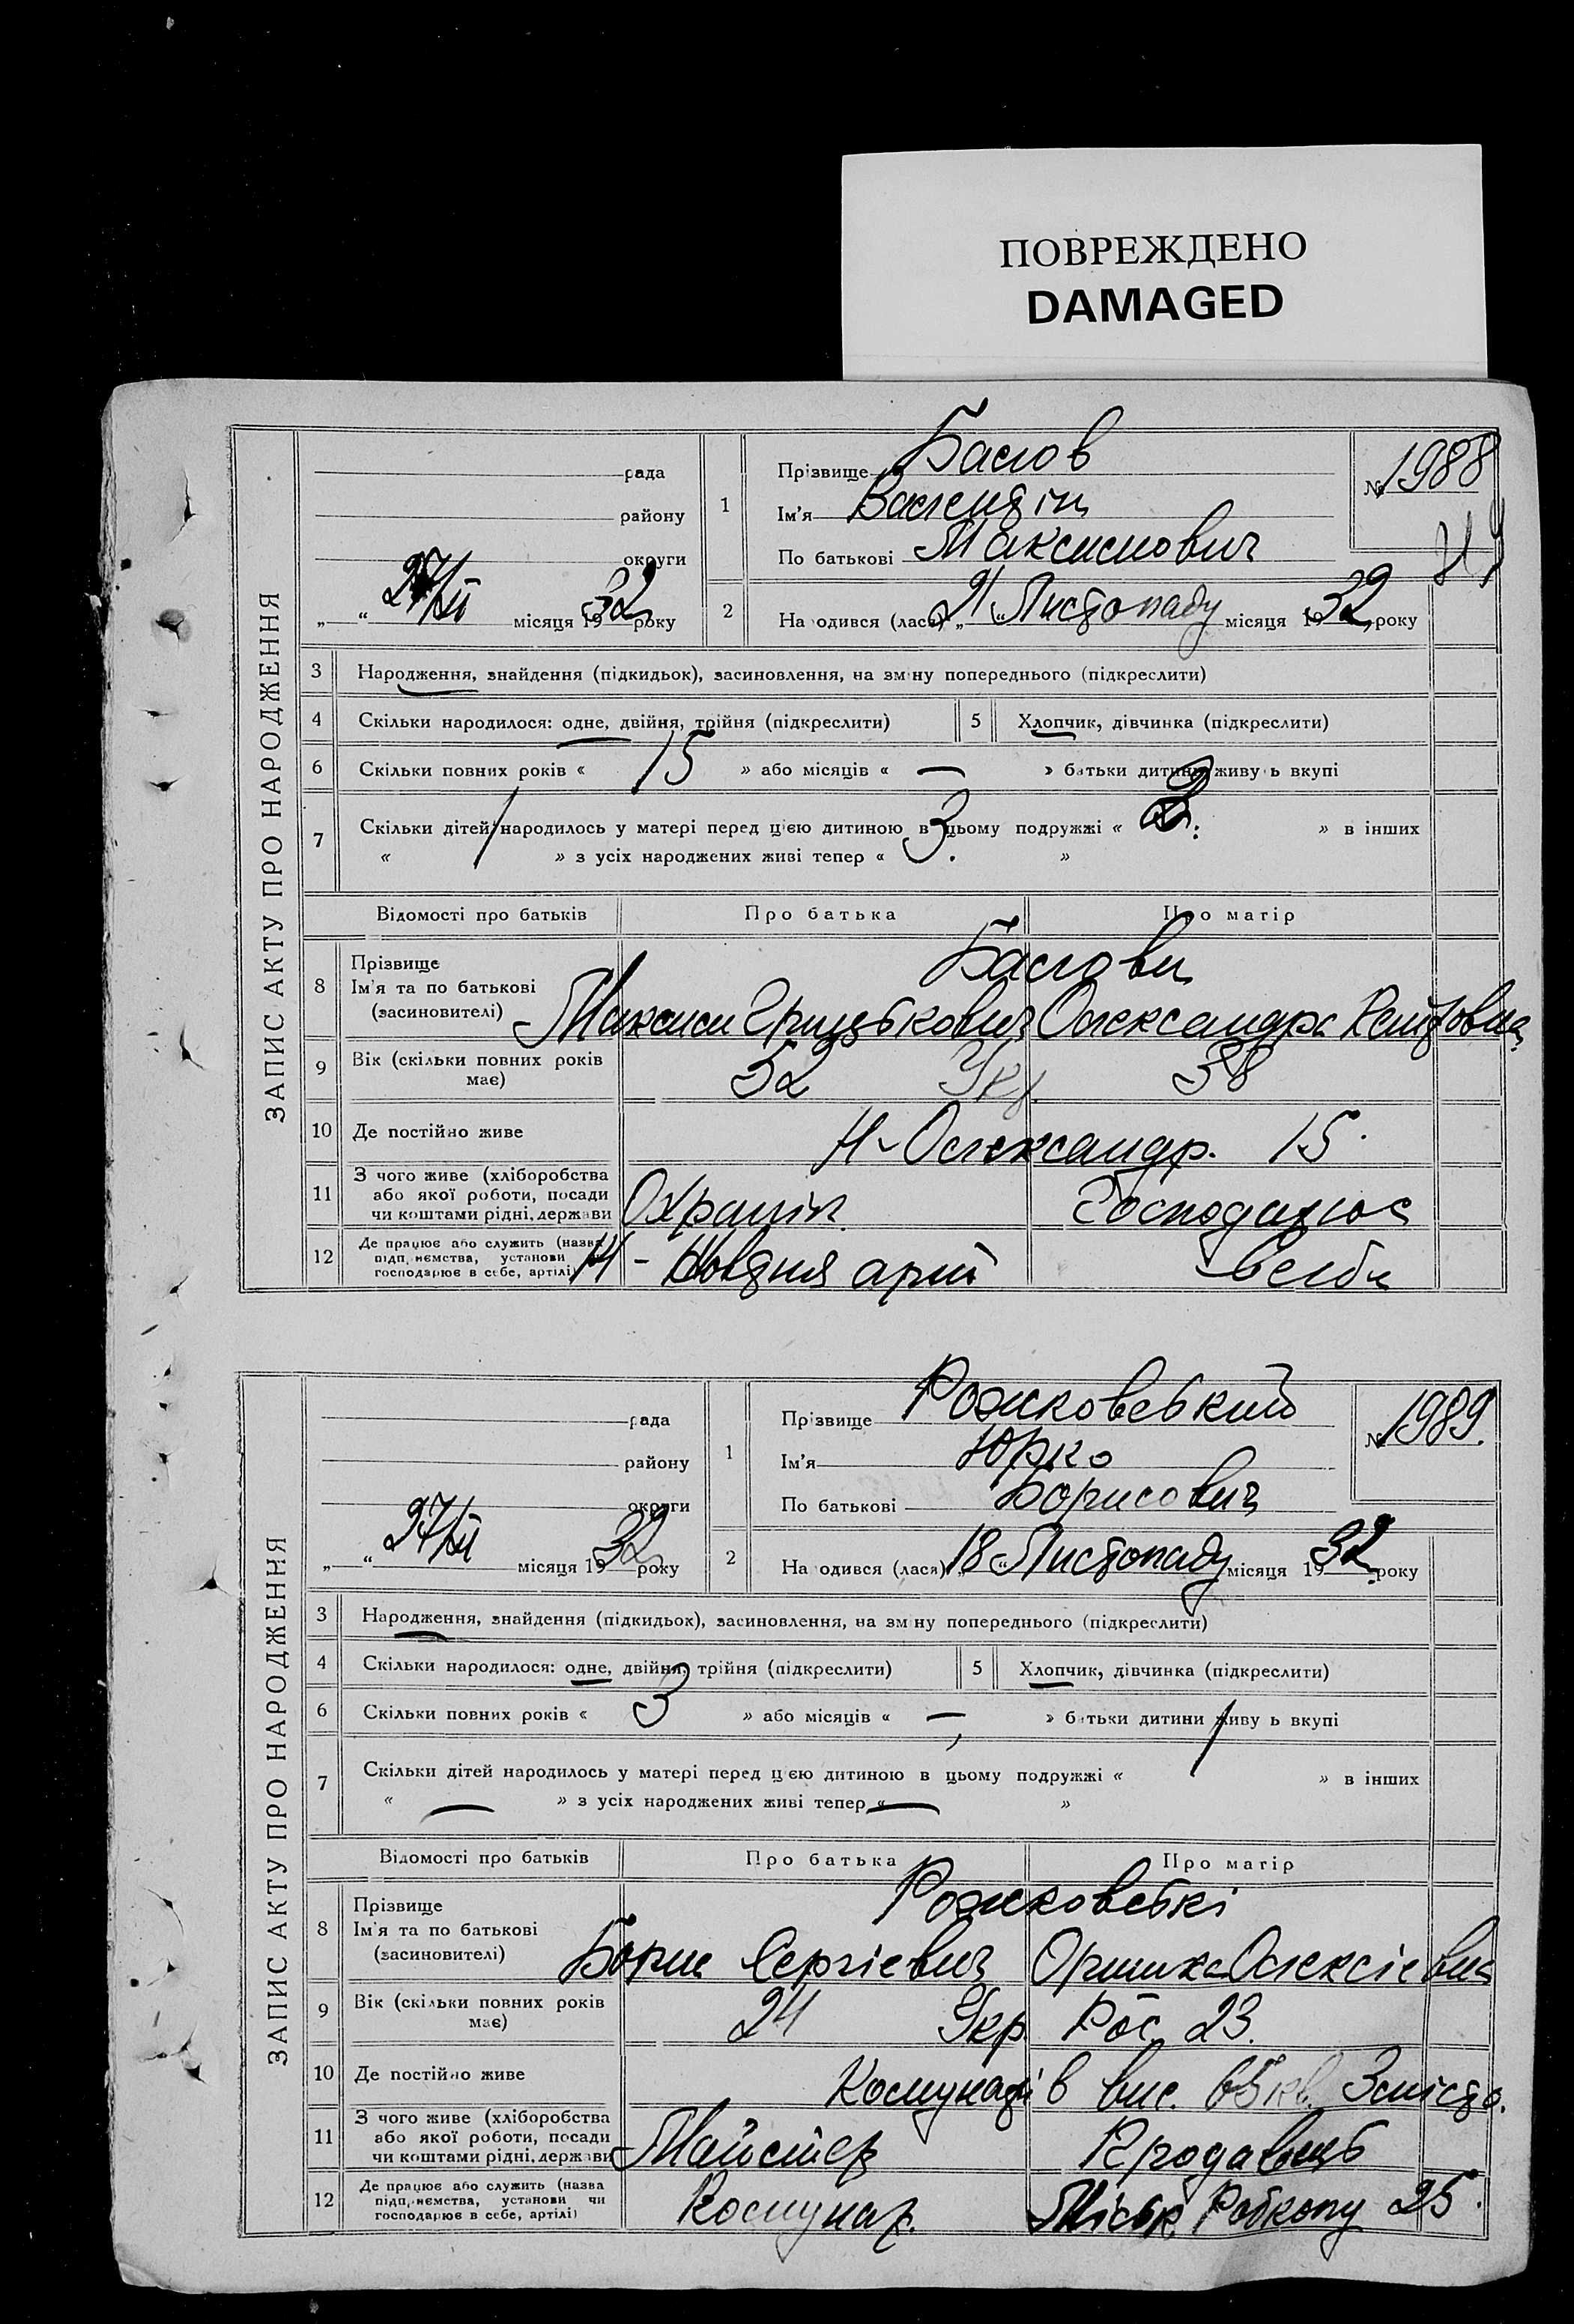 ПОВРЕЖДЕНО
DAMAGED
ЗАПИС АКТУ ПРО НАРОДЖЕННЯ
рада
району
округи
„ “ 27/XII місяця 1932 року
1
Прізвище Баглов
Ім'я Валентін
По батькові Максимович
№ 1988
2
Народився (лася) „21“ Листопаду місяця 1932 року
3 Народження, знайдення (підкидьок), засиновлення, на зміну попереднього (підкреслити)
4 Скільки народилося: одне, двійня, трійня (підкреслити) 5 Хлопчик, дівчинка (підкреслити)
6 Скільки повних років « 15 » або місяців « — » батьки дитини живуть вкупі
7 Скільки дітей народилось у матері перед цією дитиною в цьому подружжі « 3. » в інших
« / » з усіх народжених живі тепер « 3. »
Відомості про батьків Про батька Про матір
8 Прізвище
Ім'я та по батькові
(засновителі)
Максим Грицькович Олександра
9 Вік (скільки повних років має) 52 Укр. 38
10 Де постійно живе Н-Олександр. 15.
11 З чого живе (хліборобства або якої роботи, посади чи коштами рідні, держави Охранік Господарює
12 Де працює або служить (назва підприємства, установи чи господарює в себе, артілі) себе
ЗАПИС АКТУ ПРО НАРОДЖЕННЯ
рада
району
округи
„ “ 27/XII місяця 1932 року
1
Прізвище Рожковський
Ім'я Юрко
По батькові Борисович
№ 1989.
2
Народився (лася) „18“ Листопаду місяця 1932 року
3 Народження, знайдення (підкидьок), засиновлення, на зміну попереднього (підкреслити)
4 Скільки народилося: одне, двійня, трійня (підкреслити) 5 Хлопчик, дівчинка (підкреслити)
6 Скільки повних років « 3 » або місяців « — » батьки дитини живуть вкупі
7 Скільки дітей народилось у матері перед цією дитиною в цьому подружжі « / » в інших
« — » з усіх народжених живі тепер « — »
Відомості про батьків Про батька Про матір
8 Прізвище
Ім'я та по батькові
(засиновителі)
Рожковські
Борис Сергієвич Оришка Олексієвна
9 Вік (скільки повних років має) 24 Укр. Рос. 23.
10 Де постійно живе Комунарів вис. 65 кв. Змісто.
11 З чого живе (хліборобства або якої роботи, посади чи коштами рідні, держави Майстер Продавець
12 Де працює або служить (назва підприємства, установи чи господарює в себе, артілі) Комунар. Міськ. Робкопу 25.